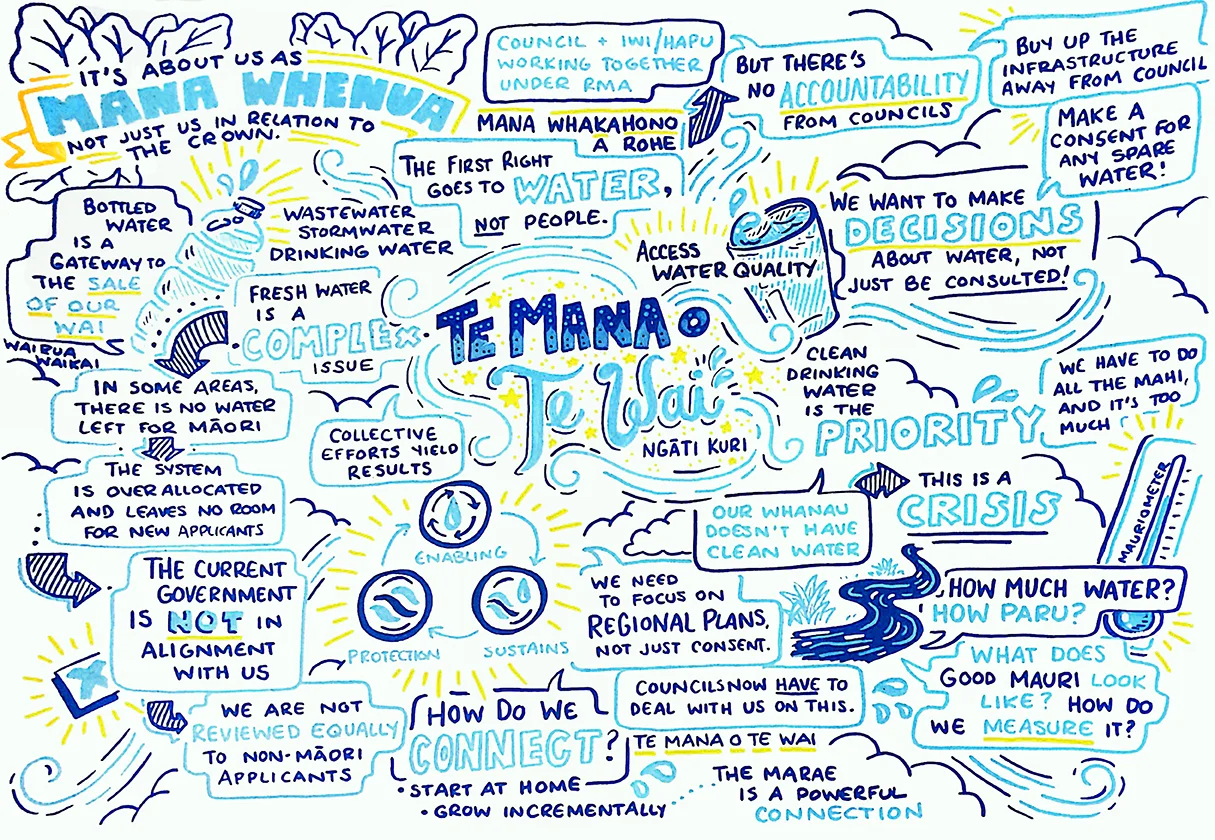 IT'S ABOUT US AS
MANA WHENUA
NOT JUST US IN RELATION TO
THE CROWN.
COUNCIL + IWI/HAPU
WORKING TOGETHER
UNDER RMA
MANA WHAKAHONO
A ROHE
BUT THERE'S
NO ACCOUNTABILITY
FROM COUNCILS
BUY UP THE
INFRASTRUCTURE
AWAY FROM COUNCIL
MAKE A
CONSENT FOR
ANY SPARE
WATER!
THE FIRST RIGHT
GOES TO WATER,
NOT PEOPLE.
BOTTLED
WATER
IS A
GATEWAY TO
THE SALE
OF OUR
WAI
WAIRUA
WAIKAI
WASTEWATER
STORMWATER
DRINKING WATER
FRESH WATER
IS A
COMPLEX
ISSUE
ACCESS
WATER QUALITY
WE WANT TO MAKE
DECISIONS
ABOUT WATER, NOT
JUST BE CONSULTED!
TE MANA O
Te Wai
NGĀTI KURI
IN SOME AREAS,
THERE IS NO WATER
LEFT FOR MĀORI
COLLECTIVE
EFFORTS YIELD
RESULTS
CLEAN
DRINKING
WATER
IS THE
PRIORITY
WE HAVE TO DO
ALL THE MAHI,
AND IT'S TOO
MUCH
THE SYSTEM
IS OVER ALLOCATED
AND LEAVES NO ROOM
FOR NEW APPLICANTS
OUR WHANAU
DOESN'T HAVE
CLEAN WATER
THIS IS A
CRISIS
MAURIOMETER
ENABLING
PROTECTION
SUSTAINS
THE CURRENT
GOVERNMENT
IS NOT IN
ALIGNMENT
WITH US
WE NEED
TO FOCUS ON
REGIONAL PLANS,
NOT JUST CONSENT.
HOW MUCH WATER?
HOW PARU?
WHAT DOES
GOOD MAURI LOOK
LIKE? HOW DO
WE MEASURE IT?
WE ARE NOT
REVIEWED EQUALLY
TO NON-MĀORI
APPLICANTS
HOW DO WE
CONNECT?
• START AT HOME
• GROW INCREMENTALLY
COUNCILS NOW HAVE TO
DEAL WITH US ON THIS.
TE MANA O TE WAI
THE MARAE
IS A POWERFUL
CONNECTION